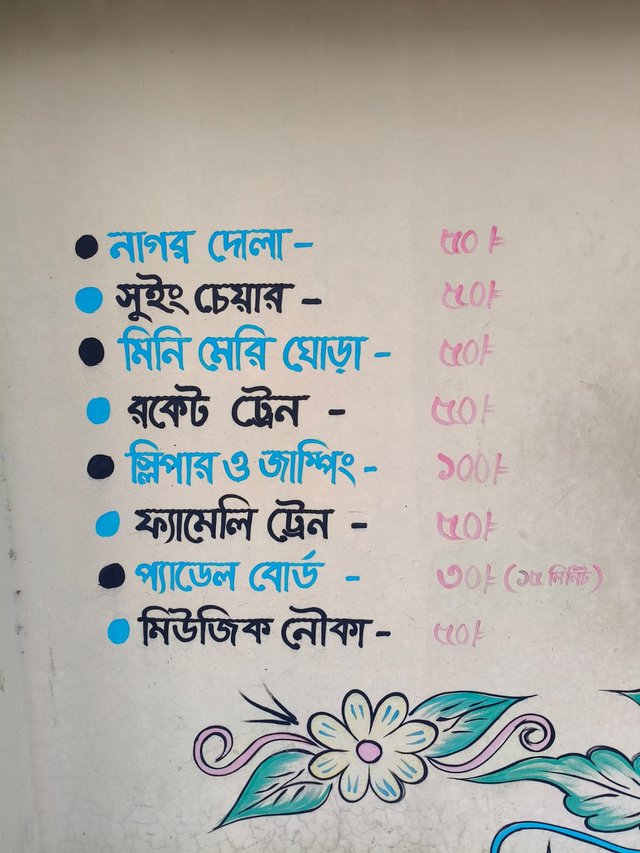 নাগর দোলা - ৫০/-
সুইং চেয়ার - ৫০/-
মিনি মেরি ঘোড়া - ৫০/-
রকেট ট্রেন - ৫০/-
স্লিপার ও জাম্পিং - ১০০/-
ফ্যামেলি ট্রেন - ৫০/-
প্যাডেল বোর্ড - ৩০/- (১৫ মিনিট)
মিউজিক নৌকা - ৫০/-